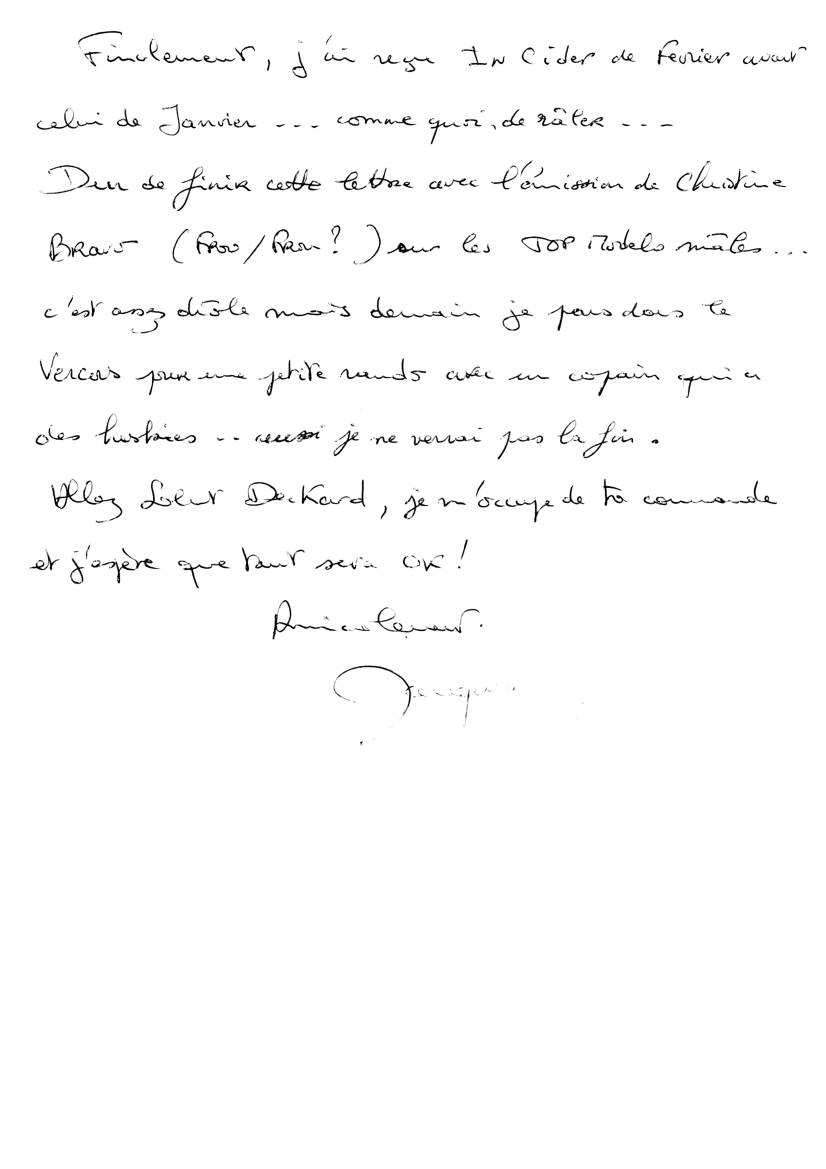 Finalement, j'ai reçu In Cider de Février avant
celui de Janvier ... comme quoi, de râler ...
Dur de finir cette lettre avec l'émission de Christine
Bravo (Frou/Frou ?) sur les TOP Models mâles...
c'est assez drôle mais demain je pars dans le
Vercors pour une petite rando avec un copain qui a
des huskies .. aussi je ne verrai pas la fin.
Allez Salut Deckard, je m'occupe de ta commande
et j'espère que tout sera OK !
Amicalement.